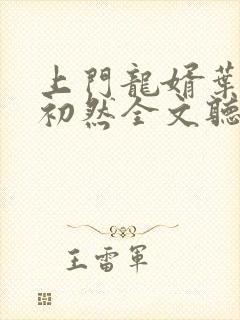 上門龍婿葉
初然全文聽
王雷軍